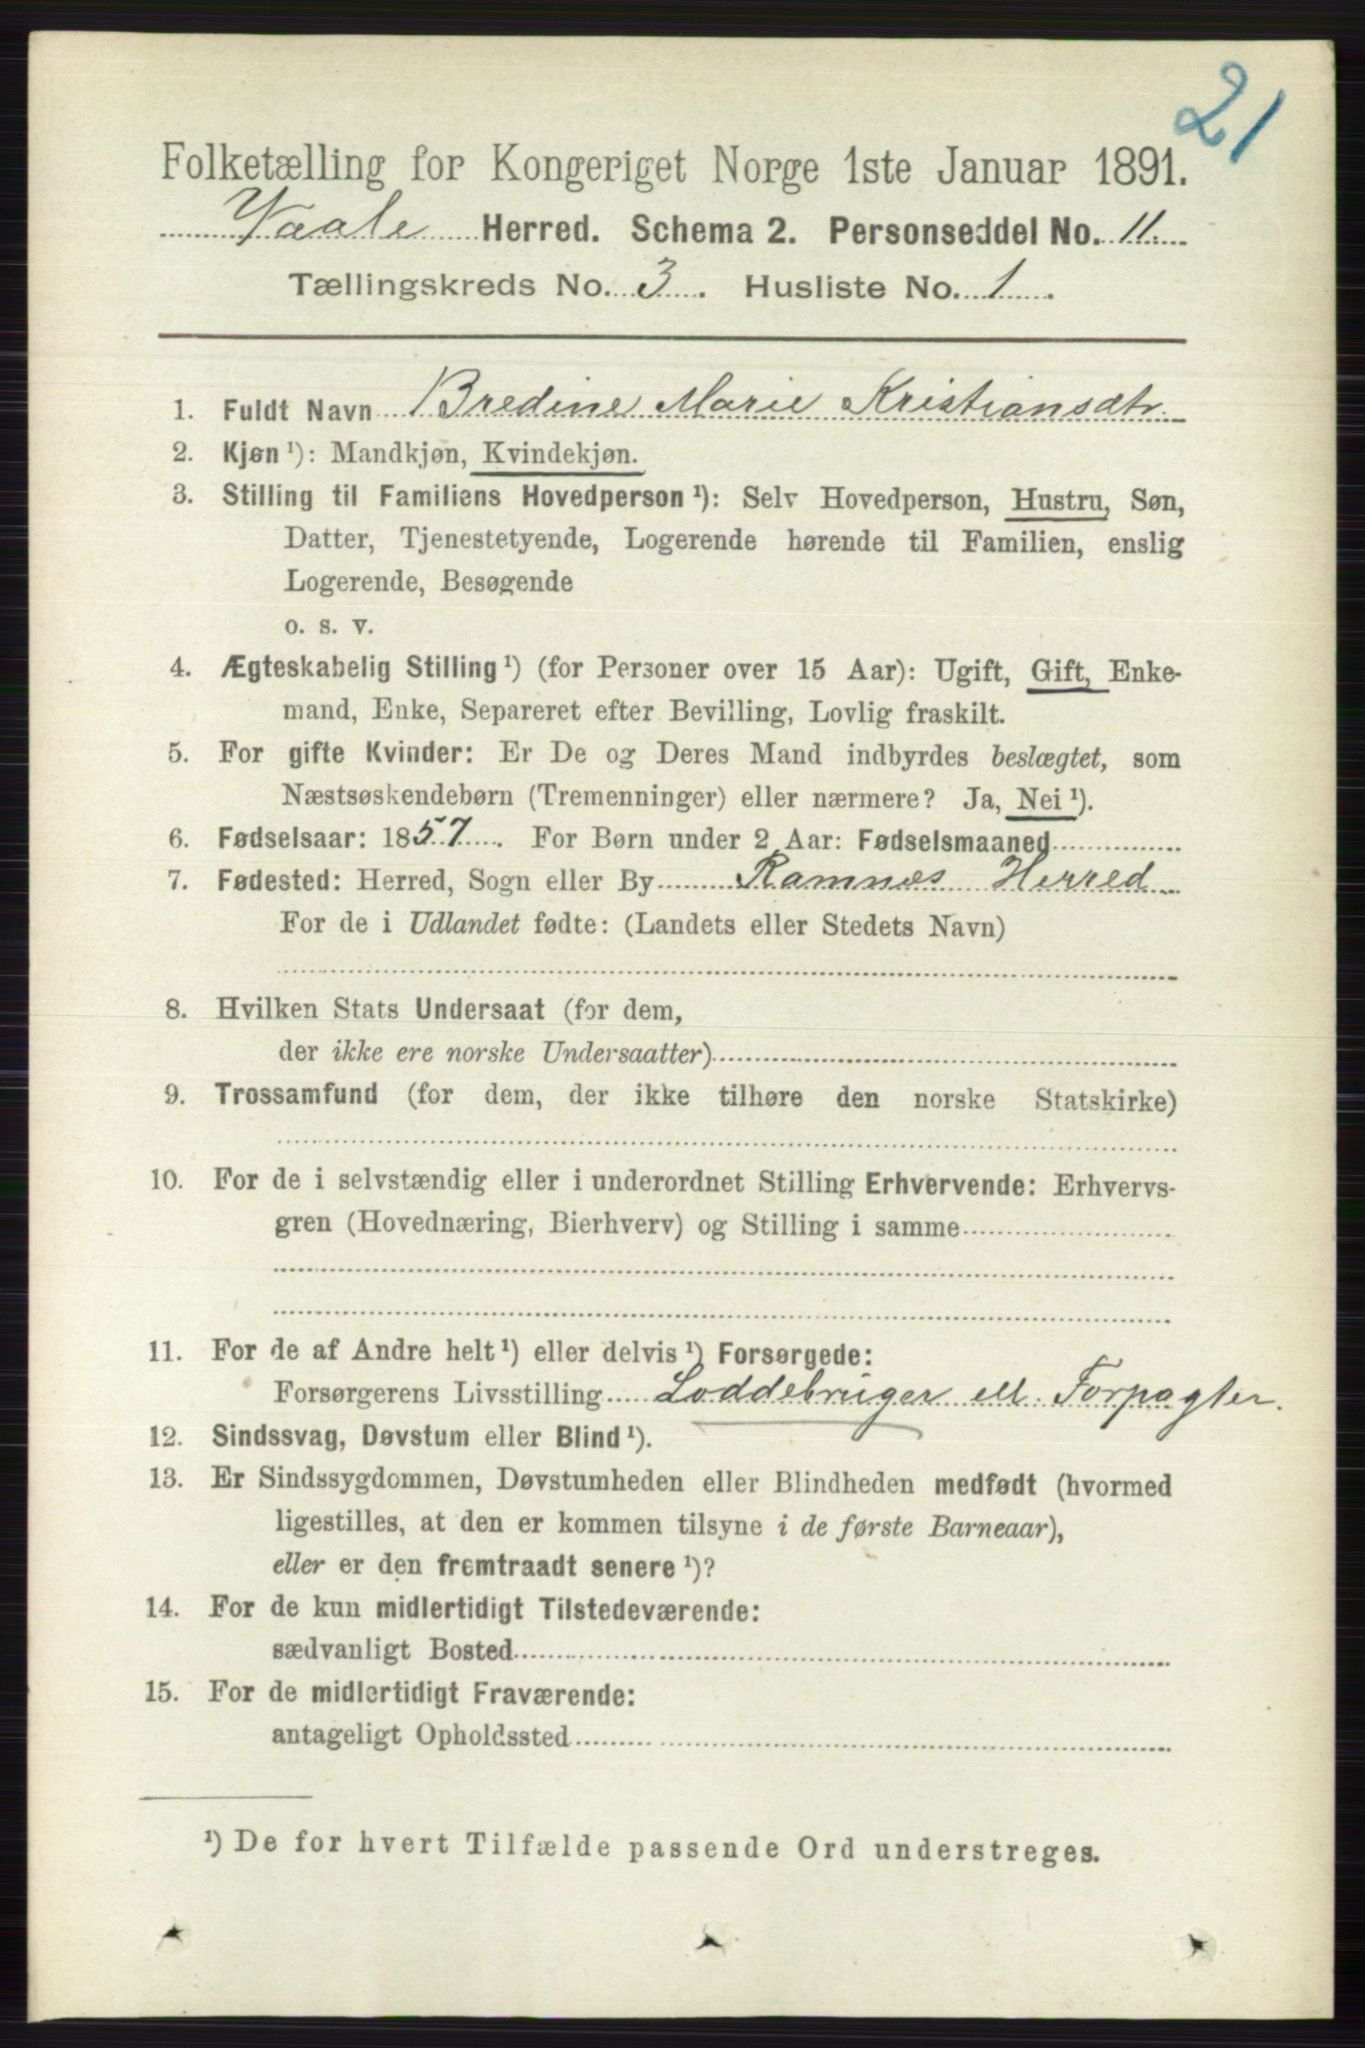 21
Folketælling for Kongeriget Norge 1ste Januar 1891.
Vaale Herred. Schema 2. Personseddel No. 11.
Tællingskreds No. 3. Husliste No. 1.
1. Fuldt Navn Bredine Marie Kristiansdtr.
2. Kjøn ¹): Mandkjøn, Kvindekjøn.
3. Stilling til Familiens Hovedperson ¹): Selv Hovedperson, Hustru, Søn,
Datter, Tjenestetyende, Logerende hørende til Familien, enslig
Logerende, Besøgende
o. s. v.
4. Ægteskabelig Stilling ¹) (for Personer over 15 Aar): Ugift, Gift, Enke-
mand, Enke, Separeret efter Bevilling, Lovlig fraskilt.
5. For gifte Kvinder: Er De og Deres Mand indbyrdes beslægtet, som
Næstsøskendebørn (Tremenninger) eller nærmere? Ja, Nei ¹).
6. Fødselsaar: 1857. For Børn under 2 Aar: Fødselsmaaned
7. Fødested: Herred, Sogn eller By Ramnæs Herred
For de i Udlandet fødte: (Landets eller Stedets Navn)
8. Hvilken Stats Undersaat (for dem,
der ikke ere norske Undersaatter)
9. Trossamfund (for dem, der ikke tilhøre den norske Statskirke)
10. For de i selvstændig eller i underordnet Stilling Erhvervende: Erhvervs-
gren (Hovednæring, Bierhverv) og Stilling i samme
11. For de af Andre helt ¹) eller delvis ¹) Forsørgede:
Forsørgerens Livsstilling Loddebruger ell. Forpagter.
12. Sindssvag, Døvstum eller Blind ¹).
13. Er Sindssygdommen, Døvstumheden eller Blindheden medfødt (hvormed
ligestilles, at den er kommen tilsyne i de første Barneaar),
eller er den fremtraadt senere ¹)?
14. For de kun midlertidigt Tilstedeværende:
sædvanligt Bosted
15. For de midlertidigt Fraværende:
antageligt Opholdssted
¹) De for hvert Tilfælde passende Ord understreges.